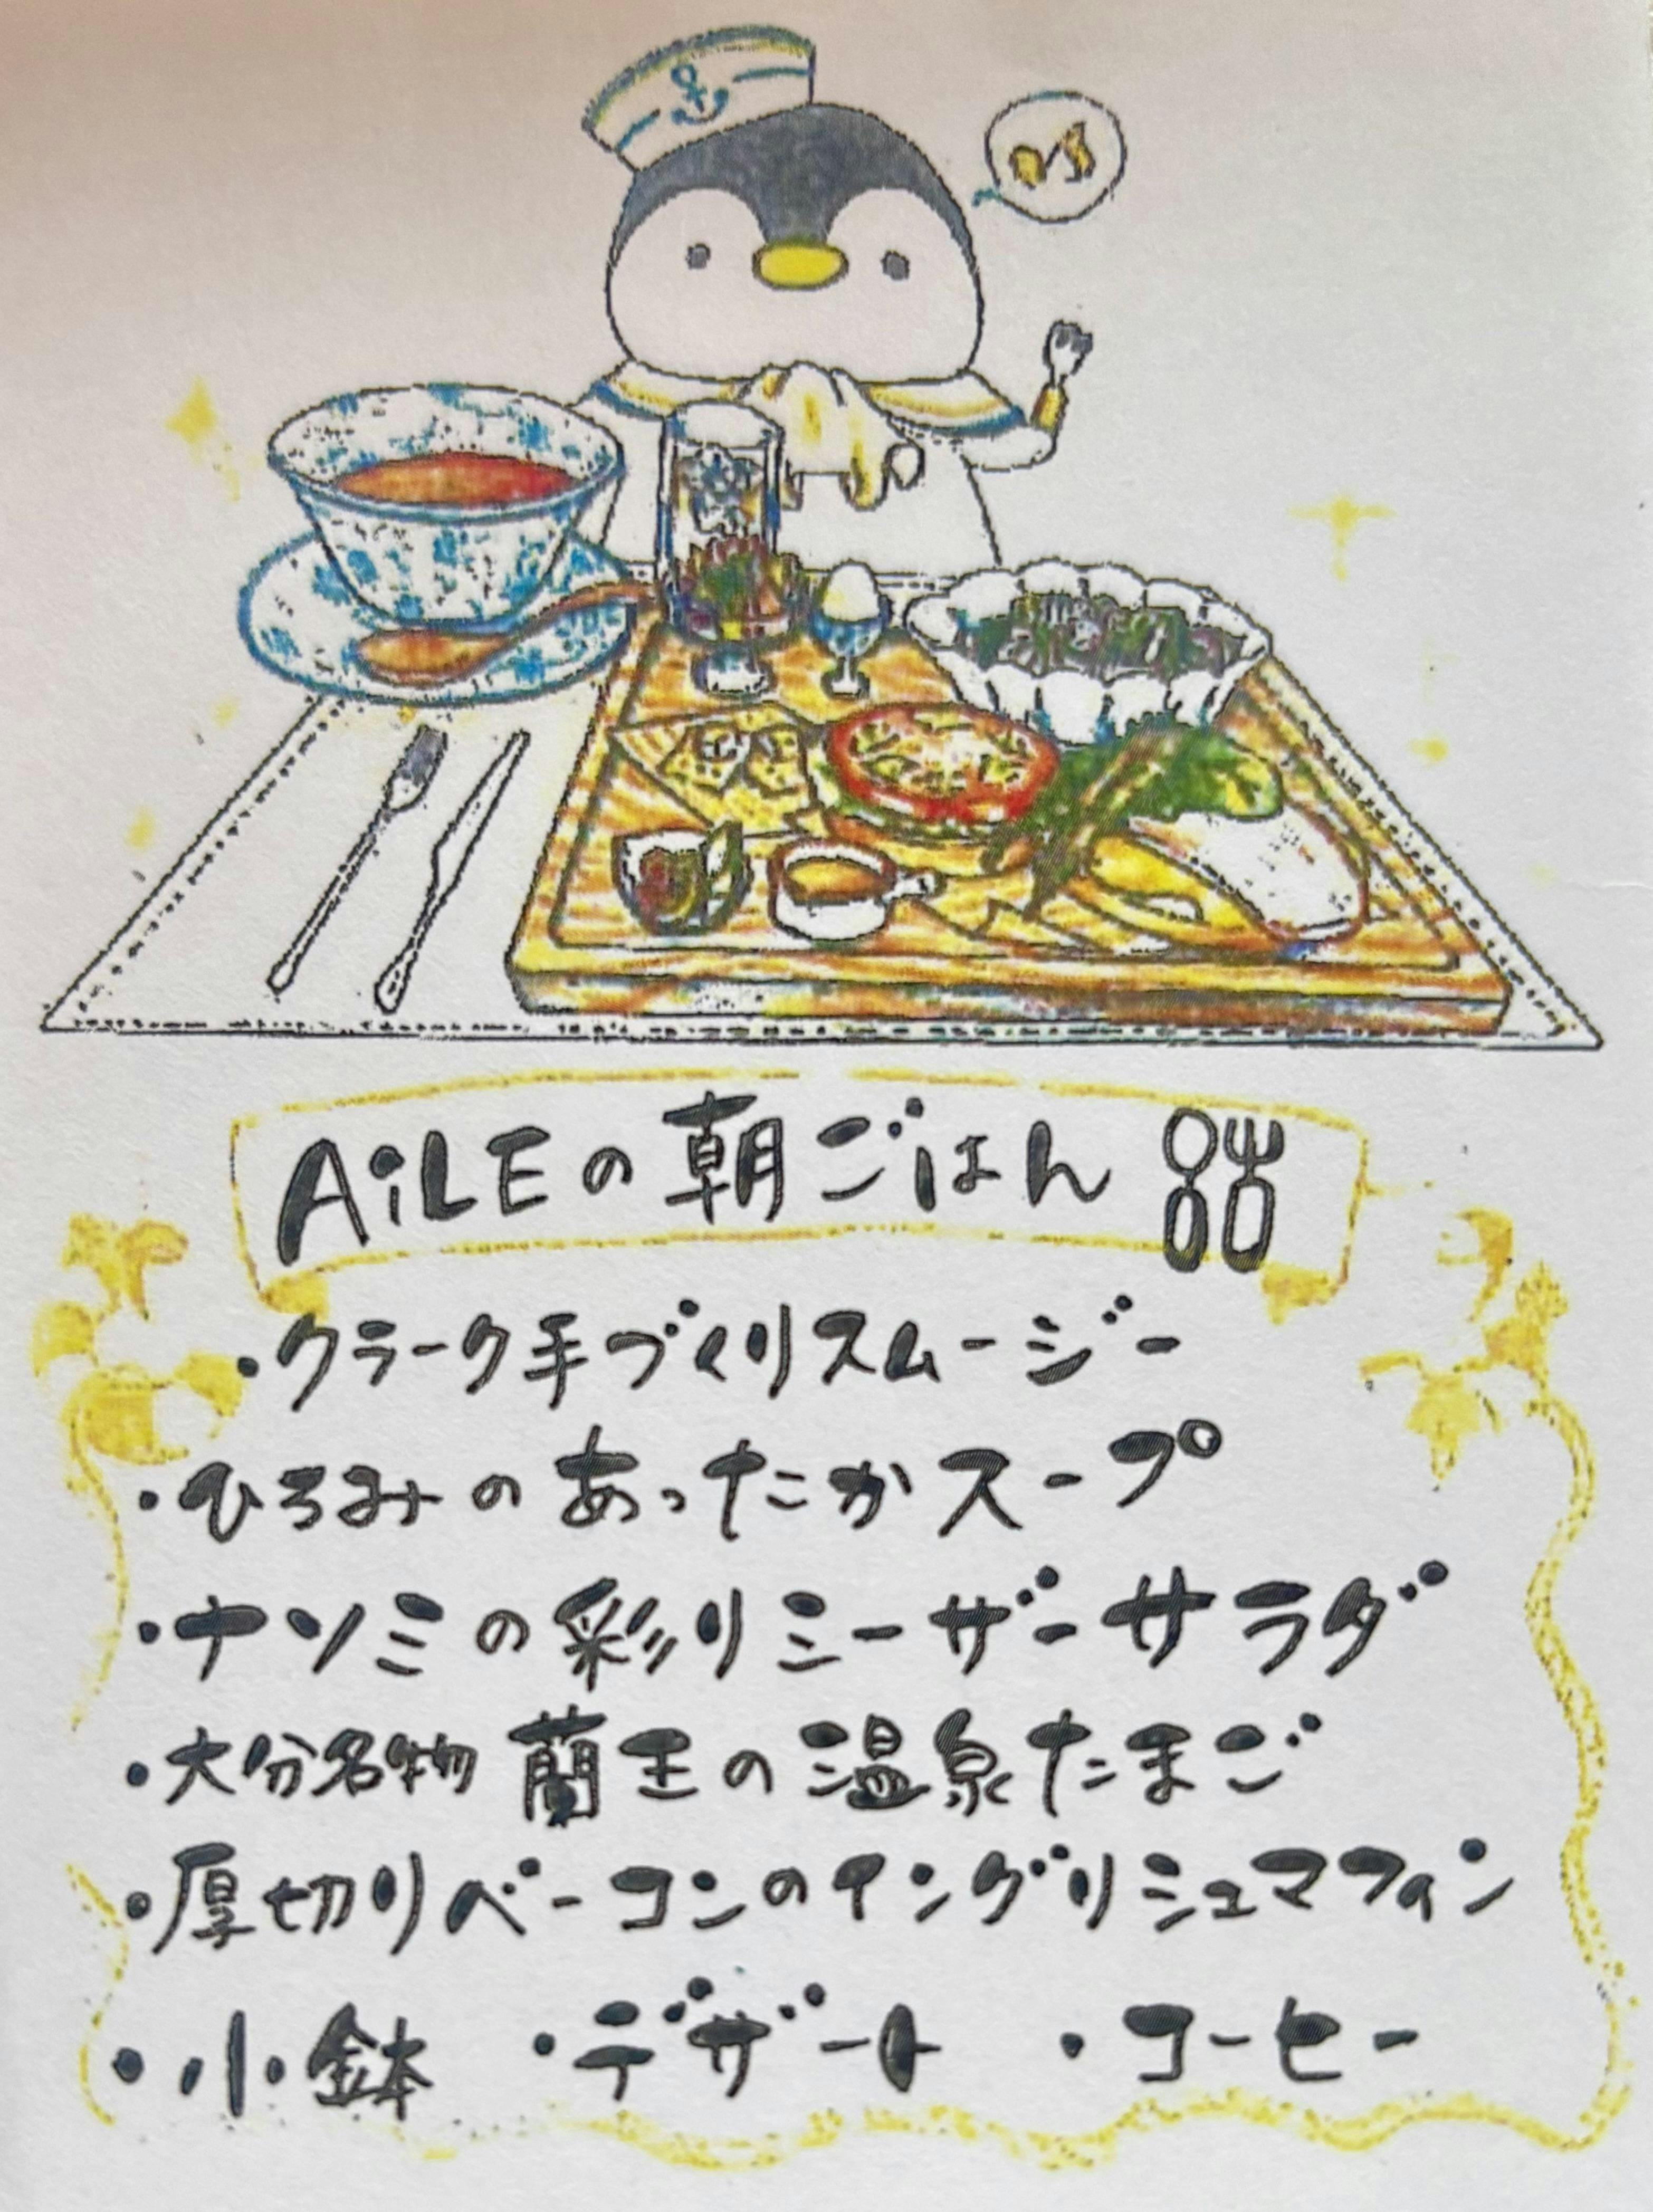 AiLEの朝ごはん
・クラーク手づくりスムージー
・ひろみのあったかスープ
・ナソミの彩りシーザーサラダ
・大分名物 蘭王の温泉たまご
・厚切りベーコンのイングリシュマフィン
・小鉢 ・デザート ・コーヒー